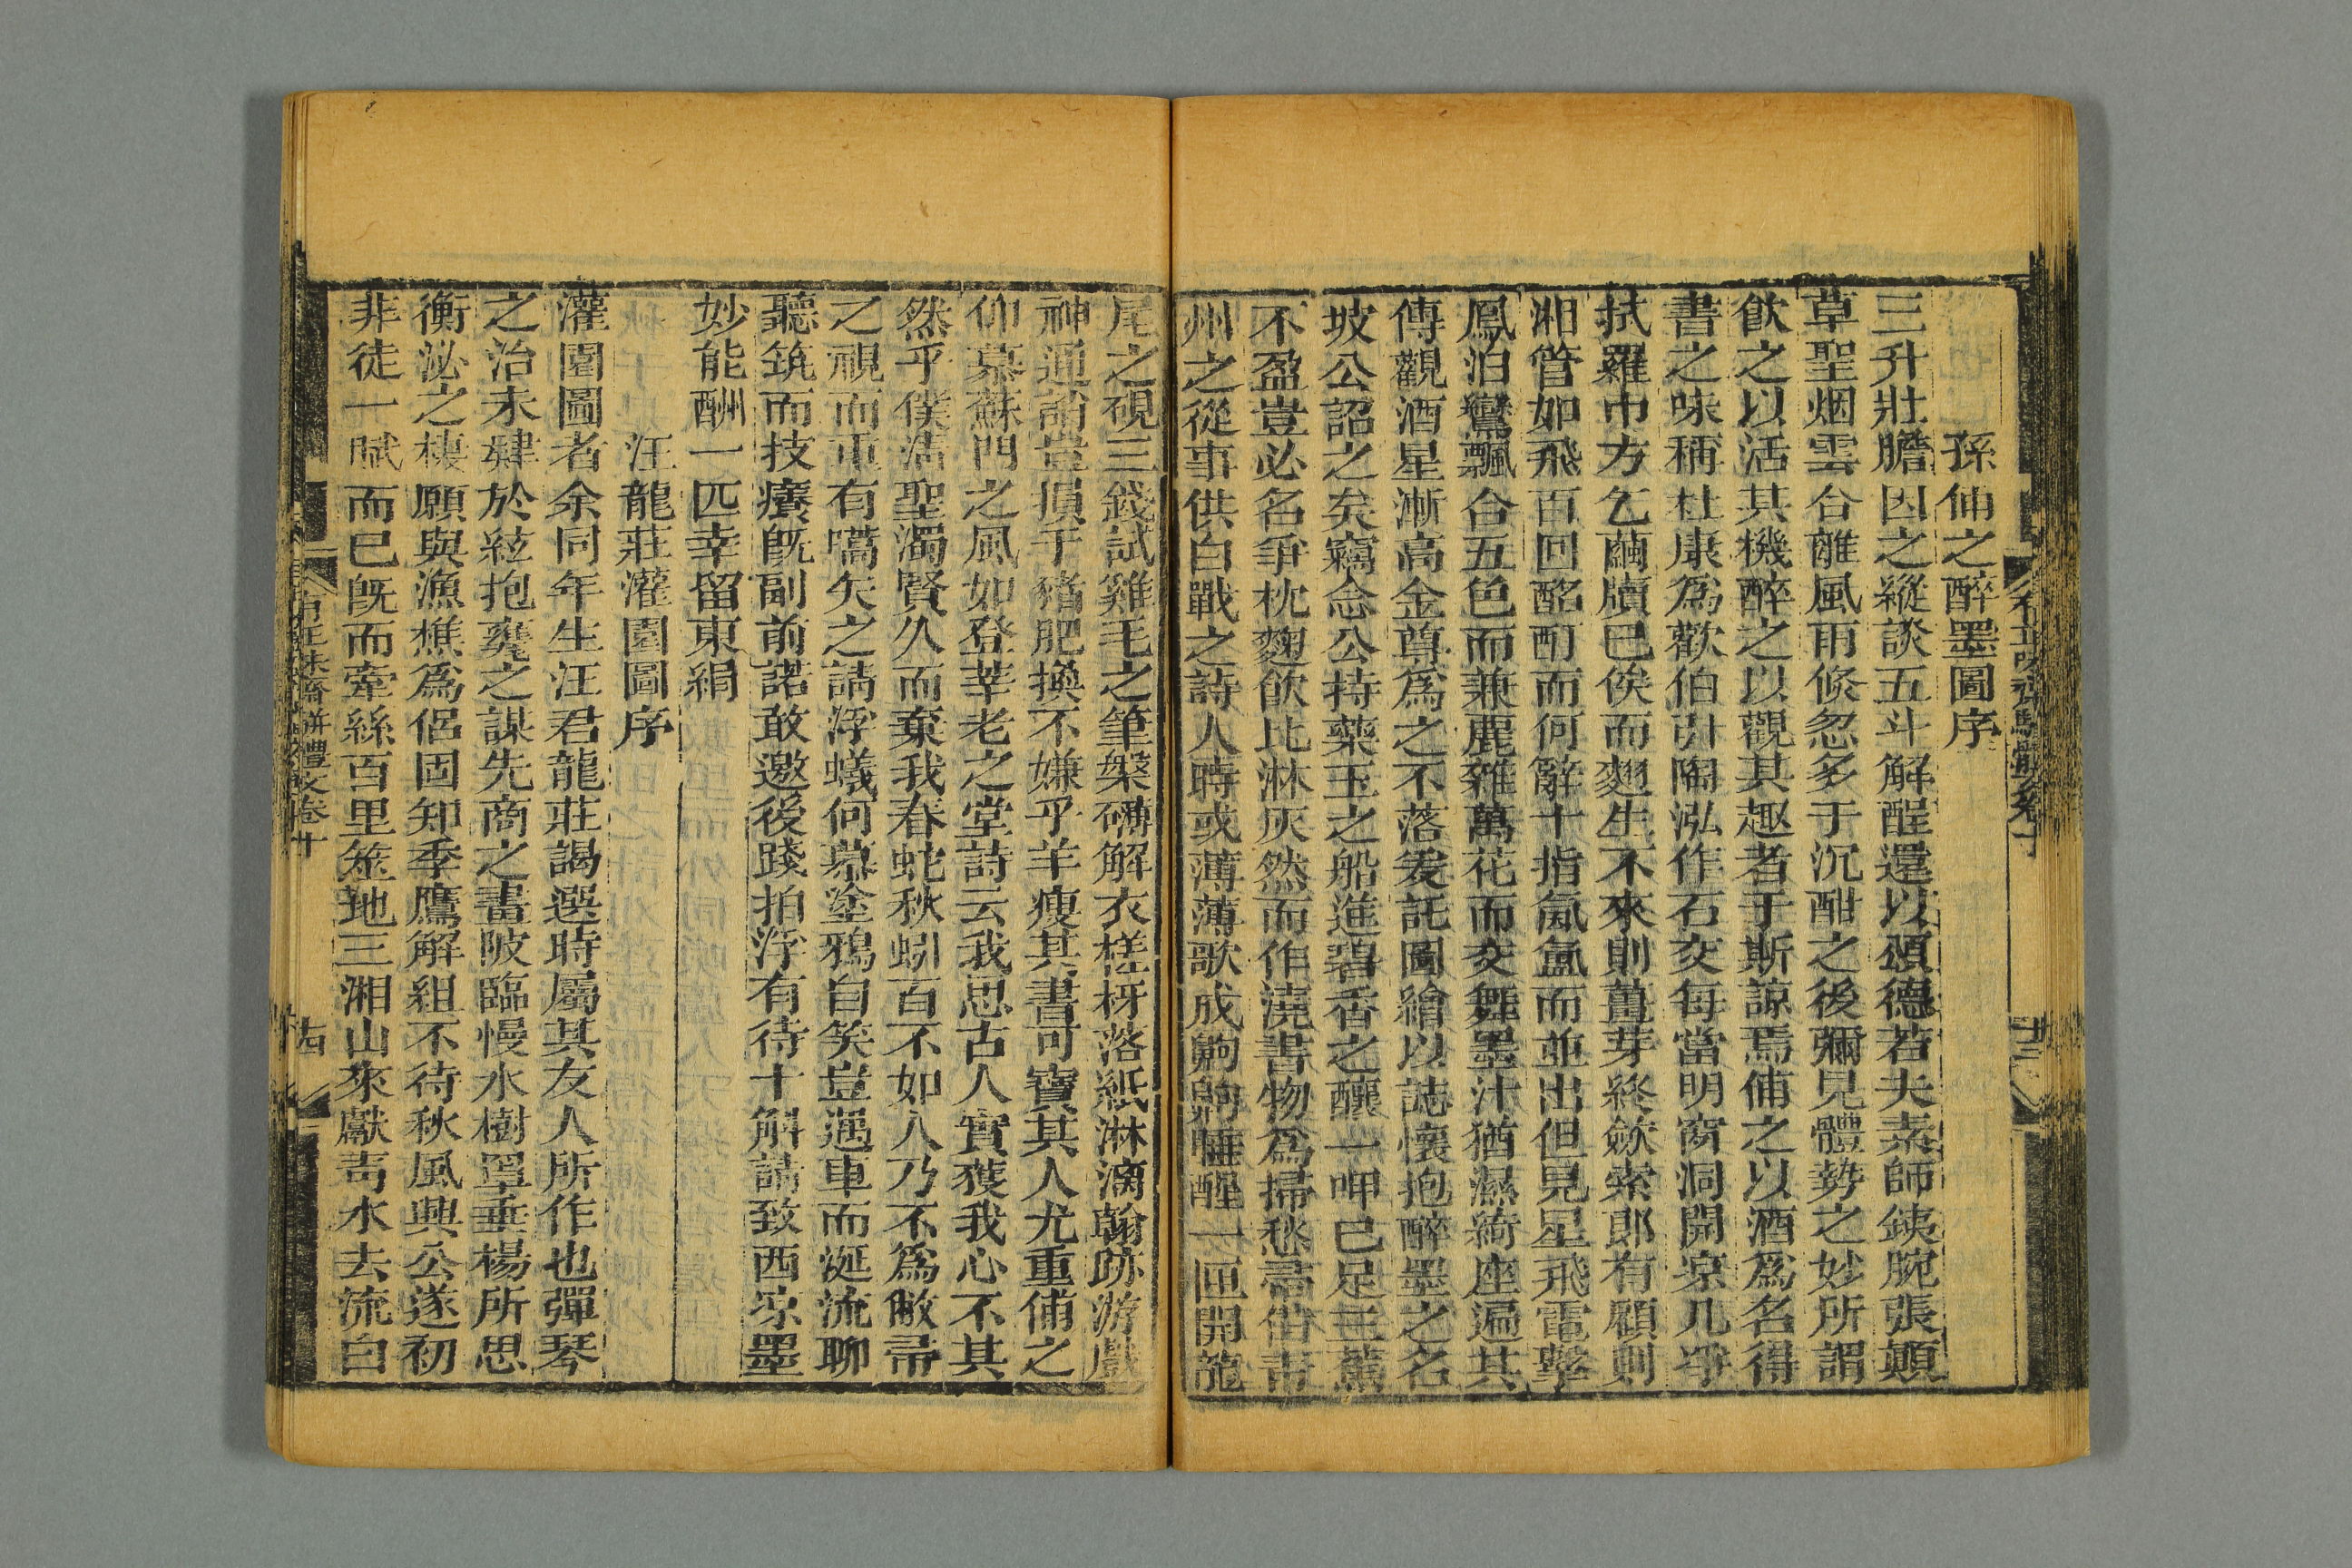 孫侑之醉墨圖序
三升壯膽因之縱談五斗解酲還以頌德若夫素師鉄腕張顛
草聖烟雲合離風雨倐忽多于沉酣之後彌見體勢之妙所謂
飲之以活其機醉之以觀其趣者于斯諒焉侑之以酒爲名得
書之味稱杜康爲歡伯引陶泓作石交每當明窗洞開凉几淨
拭羅巾方乞繭牘巳俟而麴生不來則薑芽終歛索郎有顧則
湘管如飛百回酩酊而何辭十指氤氳而並出但見星飛電擊
鳳泊鸞飄合五色而兼麗雜萬花而交舞墨汁猶濕綺座遍其
傳觀酒星漸高金尊爲之不落爰託圖繪以誌懷抱醉墨之名
坡公詔之矣竊念公持藥玉之船進碧香之釀一呷巳足三蕉
不盈豈必名爭枕麴飲比淋灰然而作澆書物爲掃愁帚借青
州之從事供白戰之詩人時或薄薄歌成齁齁睡醒一匣開龍
尾之硯三錢試雞毛之筆槃礴解衣槎枒落紙淋漓翰跡游戲
神通誚豈損于豬肥換不嫌乎羊瘦其書可寶其人尤重侑之
仰慕蘇門之風如登莘老之堂詩云我思古人實獲我心不其
然乎僕清聖濁賢久而棄我春蛇秋蚓百不如人乃不爲敝帚
之視而重有嚆矢之請浮蟻何慕塗鴉自笑豈遇車而涎流聊
聽筑而技癢旣副前諾敢邀後踐拍浮有待十斛請致西凉墨
妙能酬一匹幸留東絹
汪龍莊灌園圖序
灌園圖者余同年生汪君龍莊謁選時屬其友人所作也彈琴
之治未肄於絃抱甕之謀先商之畫陂臨慢水樹罩垂楊所思
衡泌之棲願與漁樵爲侶固知季鷹解組不待秋風興公遂初
非徒一賦而巳旣而牽絲百里筮地三湘山來獻靑水去流白
有正味齋駢體文卷十
十四